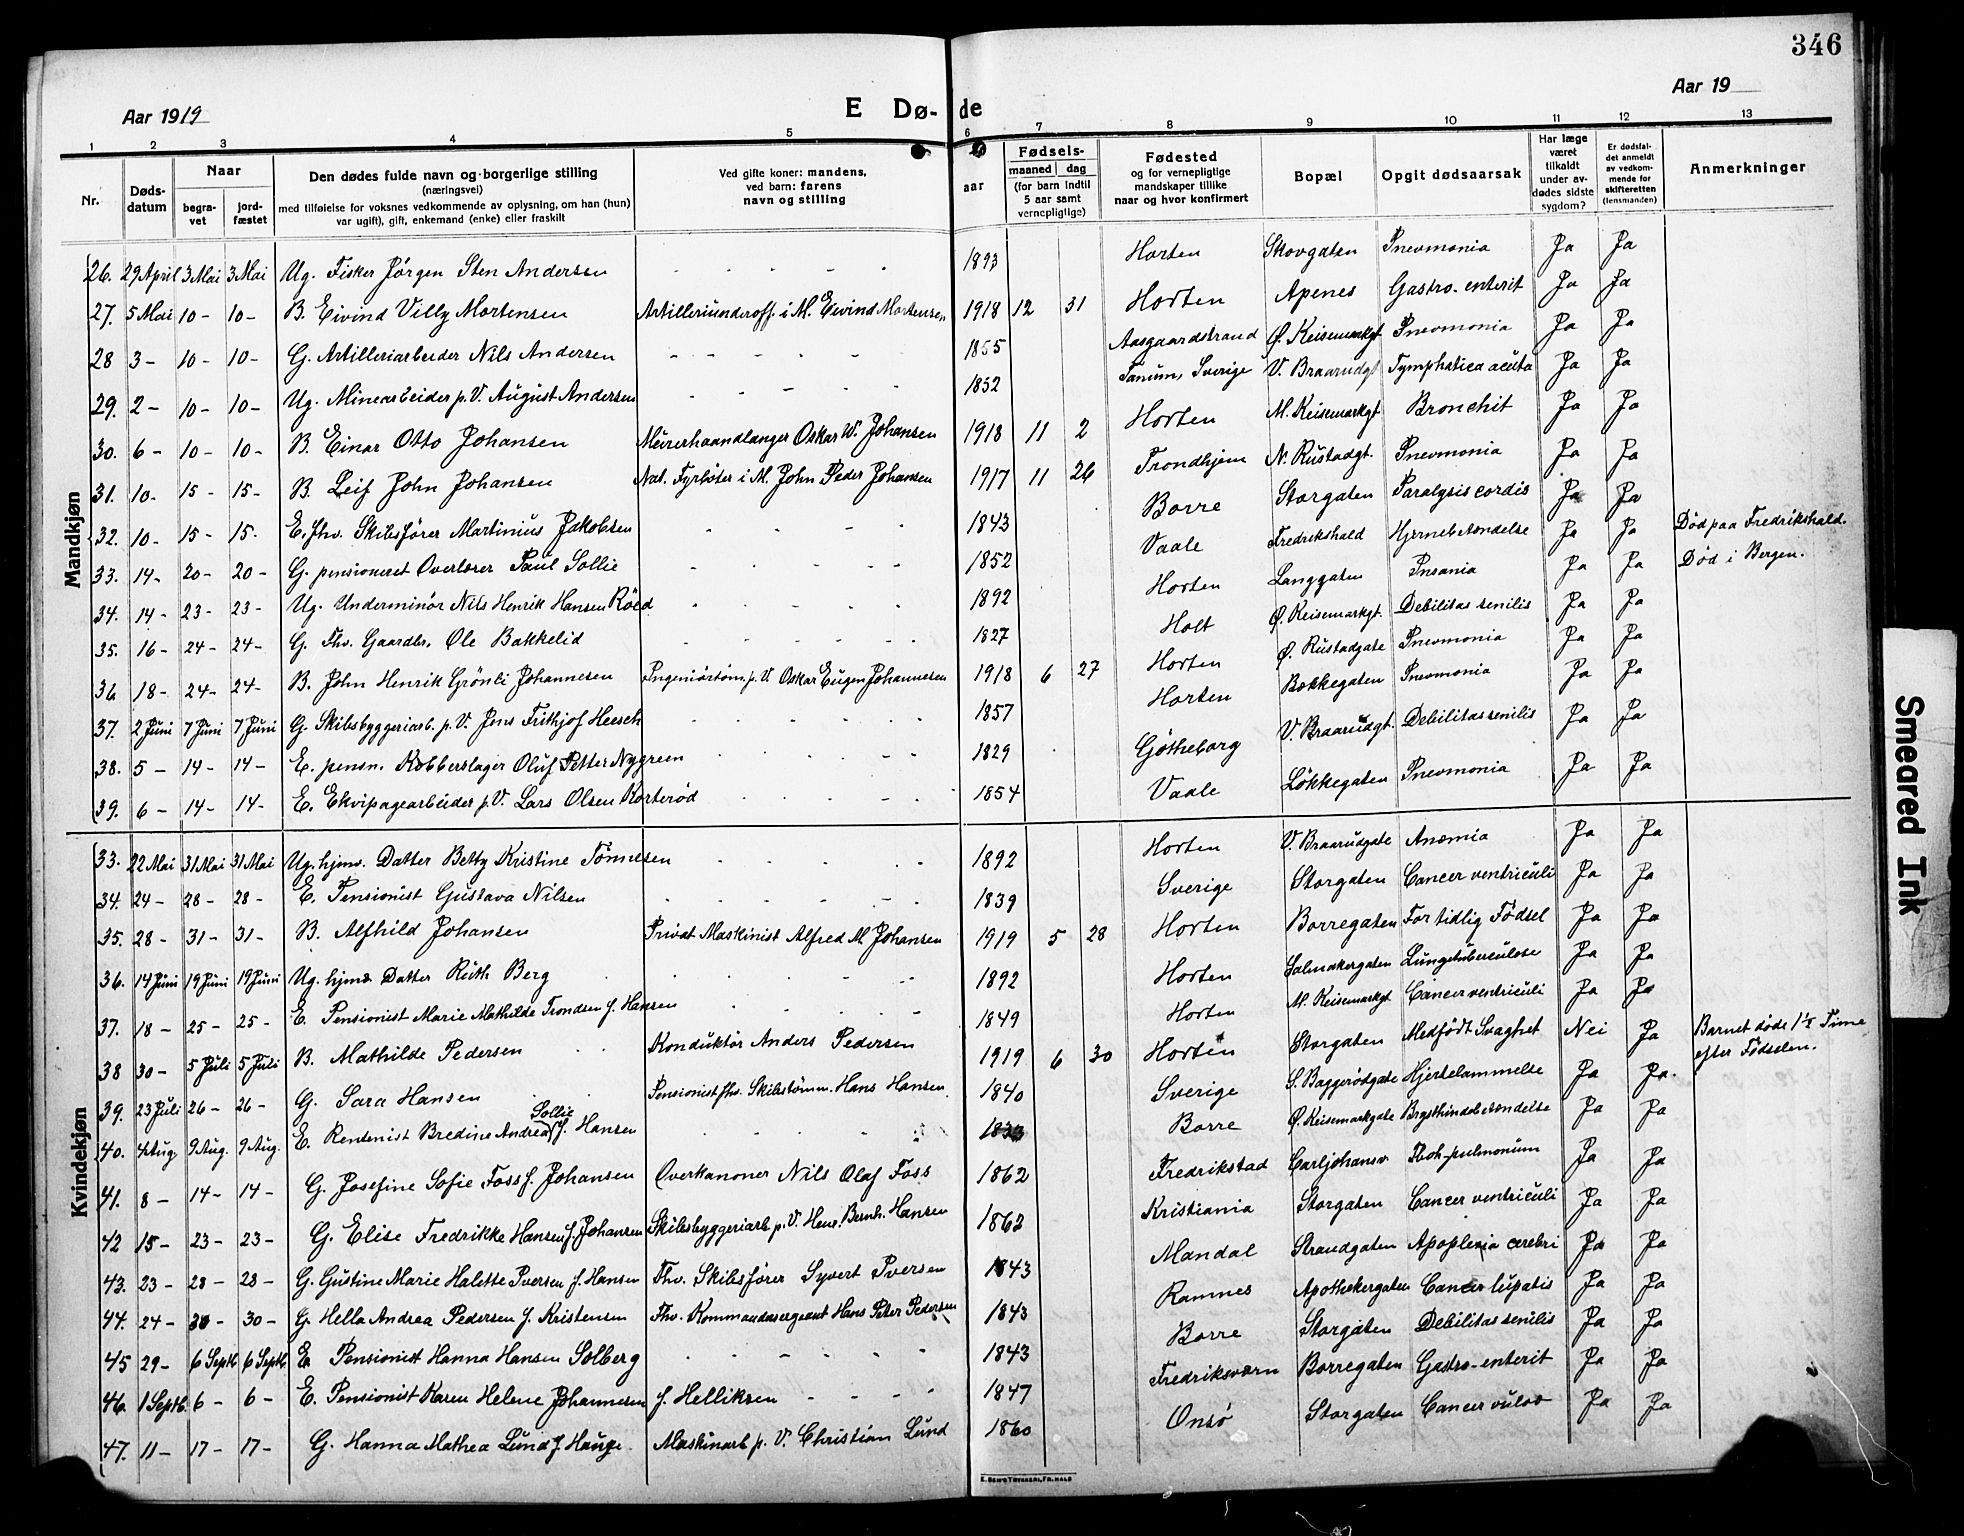 346
Aar 1919
E Dø- de
Aar 19
1 2 3 4 5 6 7 8 9 10 11 12 13
Nr.
Døds-datum
Naar
begra-vet
jord-fæstet
Den dødes fulde navn og borgerlige stilling
(næringsvei)
med tilføielse for voksnes vedkommende av oplysning, om han (hun)
var ugift), gift, enkemand (enke) eller fraskilt
Ved gifte koner: mandens,
ved barn: farens
navn og stilling
Fødsels-
aar
maaned dag
(for barn indtil
5 aar samt
vernepligtige)
Fødested
og for vernepligtige
mandskaper tillike
naar og hvor konfirmert
Bopæl
Opgit dødsaarsak
Har læge
været
tilkaldt
under av-
dødes sidste
sygdom?
Er dødsfal-
det anmeldt
av vedkom-
mende for
skifteretten
(lensmanden)
Anmerkninger
Mandkjøn
26. 29 April 3 Mai 3 Mai Ug. Fisker Jørgen Sten Andersen - - - - - 1893 Horten Skovgaten Pnevmonia Ja Ja
27. 5 Mai 10- 10- B. Eivind Villy Mortensen Artilleriunderoff. i M. Eivind Mortensen 1918 12 31 Horten Apenes Gastro-enterit Ja Ja
28 3- 10- 10- G. Artilleriarbeider Nils Andersen - - - - - 1855 Aasgaardstrand Ø. Keisemarkgt Pnevmonia Ja Ja
29. 2- 10- 10- Ug. Minearbeider p. V. August Andersen - - - - 1852 Tanum, Sverige V. Braarudgt Tymphatica acuta Ja Ja
30. 6- 10- 10- B. Einar Otto Johansen Mürerhaandlanger Oskar W. Johansen 1918 11 2 Horten M. Keisemarkgt Bronchit Ja Ja
31. 10. 15- 15- B. Leif John Johansen Nat. Fyrbøter i M. John Peder Johansen 1917 11 26 Trondhjem N. Rustadgt. Pnevmonia Ja Ja
32. 10. 15- 15. E. fhv. Skibsfører Martinius Jakobsen - - - - 1843 Borre Storgaten Paralysis cordis Ja Ja
33. 14- 20- 20- G. pensioneret Overlærer Paul Sollie - - - - 1852 Vaale Fredrikshald Hjernebetændelse Ja Ja Død paa Fredrikshald.
34. 14- 23- 23- Ug. Underminør Nils Henrik Hansen Röed - - - - 1892 Horten Langgaten Insania Ja Ja Død i Bergen.
35. 16- 24- 24- G. Fhv. Gaardbr. Ole Bakkelid - - - - 1827 Holt Ø. Keisemarkgt. Debilitas senilis Ja Ja
36 18- 24- 24- B. John Henrik Grönli Johannesen Ingeniörtöm. p. V. Oskar Eugen Johannesen 1918 6 27 Horten Ø. Rustadgate Pnevmonia Ja Ja
37. 2 Juni 7 Juni 7 Juni G. Skibsbyggeriarb. p. V. Jens Frithjof Heesch - - - - 1857 Horten Bakkegaten Pnevmonia Ja Ja
38. 5- 14- 14- E. pensn. Kobberslager Oluf Petter Nygreen - - - - 1829 Gøtheborg V. Braarudgt. Debilitas senilis Ja Ja
39. 6- 14- 14- E. Ekvipagearbeider p. V. Lars Olsen Korterød - - - - 1854 Vaale Løkkegaten Pnevmonia Ja Ja
Kvindekjøn
33. 22 Mai 31 Mai 31 Mai Ug. hjmv. Datter Betty Kristine Tønnesen - - - - 1892 Horten V. Braarudgate Anæmia Ja Ja
34. 24- 28- 28- E. Pensionist Gustava Nilsen - - - - 1839 Sverige Storgaten Cancer ventriculi Ja Ja
35. 28- 31- 31- B. Alfhild Johansen Privat Maskinist Alfred M Johansen 1919 5 28 Horten Borregaten For tidlig Fødsel Ja Ja
36. 14 Juni 19 Juni 19 Juni Ug. hjmv. Datter Ruth Berg - - - - 1892 Horten Salmakergaten Lungetuberculose Ja Ja
37. 18- 25- 25- E. Pensionist Marie Mathilde Trondsen f. Hansen - - - - 1849 Horten M. Keisemarkgt Cancer ventriculi Ja Ja
38 30- 5 Juli 5 Juli B. Mathilde Pedersen Konduktør Anders Pedersen 1919 6 30 Horten Storgaten Medfødt Svaghet Nei Ja Barnet døde 1½ Time
efter Fødselen.
39. 23 Juli 26- 26- G. Sara Hansen Pensionist fhv. Skibstømm. Hans Hansen 1840 Sverige S. Baggerødgate Hjertelammelse Ja Ja.
40. 4 Aug. 9 Aug. 9 Aug. E. Rentenist Bredine Andrea Sollie f. Hansen - - - - Borre Ø. Keisemarkgate Brysthindebetændelse Ja Ja
41. 8- 14- 14- G. Josefine Sofie Foss f. Johansen Overkanoner Nils Olaf Foss 1862 Fredrikstad Carljohansv. Tboh-pulmonum Ja Ja
42 15- 23- 23- G. Elise Fredrikke Hansen f. Johansen Skibsbyggeriarb p. V. Henr. Bernh. Hansen 1862 Kristiania Storgaten Cancer ventriculi Ja Ja
43. 23- 28- 28- G. Gustine Marie Halette Iversen f. Hansen Fhv. Skibsfører Syvert Iversen 1843 Mandal Strandgaten Apoplexia cerebri Ja Ja
44. 24- 30- 30- G. Hella Andrea Pedersen f. Kristensen Fhv. Kommandersergeant Hans Peter Pedersen 1843 Ramnes Apothekergaten Cancer hepatis Ja Ja
45 29- 6 Septb. 6 Septb. E. Pensionist Hanna Hansen Solberg - - - - 1843 Borre Storgaten Debilitas senilis Ja Ja
46. 1 Septb. 6- 6- E. Pensionist Karen Helene Johannesen f. Helliksen - - - - 1847 Fredriksværn Borregaten Gastro-enterit Ja Ja
47. 11- 17- 17- G. Hanna Mathea Lund f. Hauge. Maskinarb p. V. Christian Lund 1860 Onsø Storgaten Cancer vulvæ Ja Ja
E. Sem's Trykkeri, Fr.hald
Smeared Ink